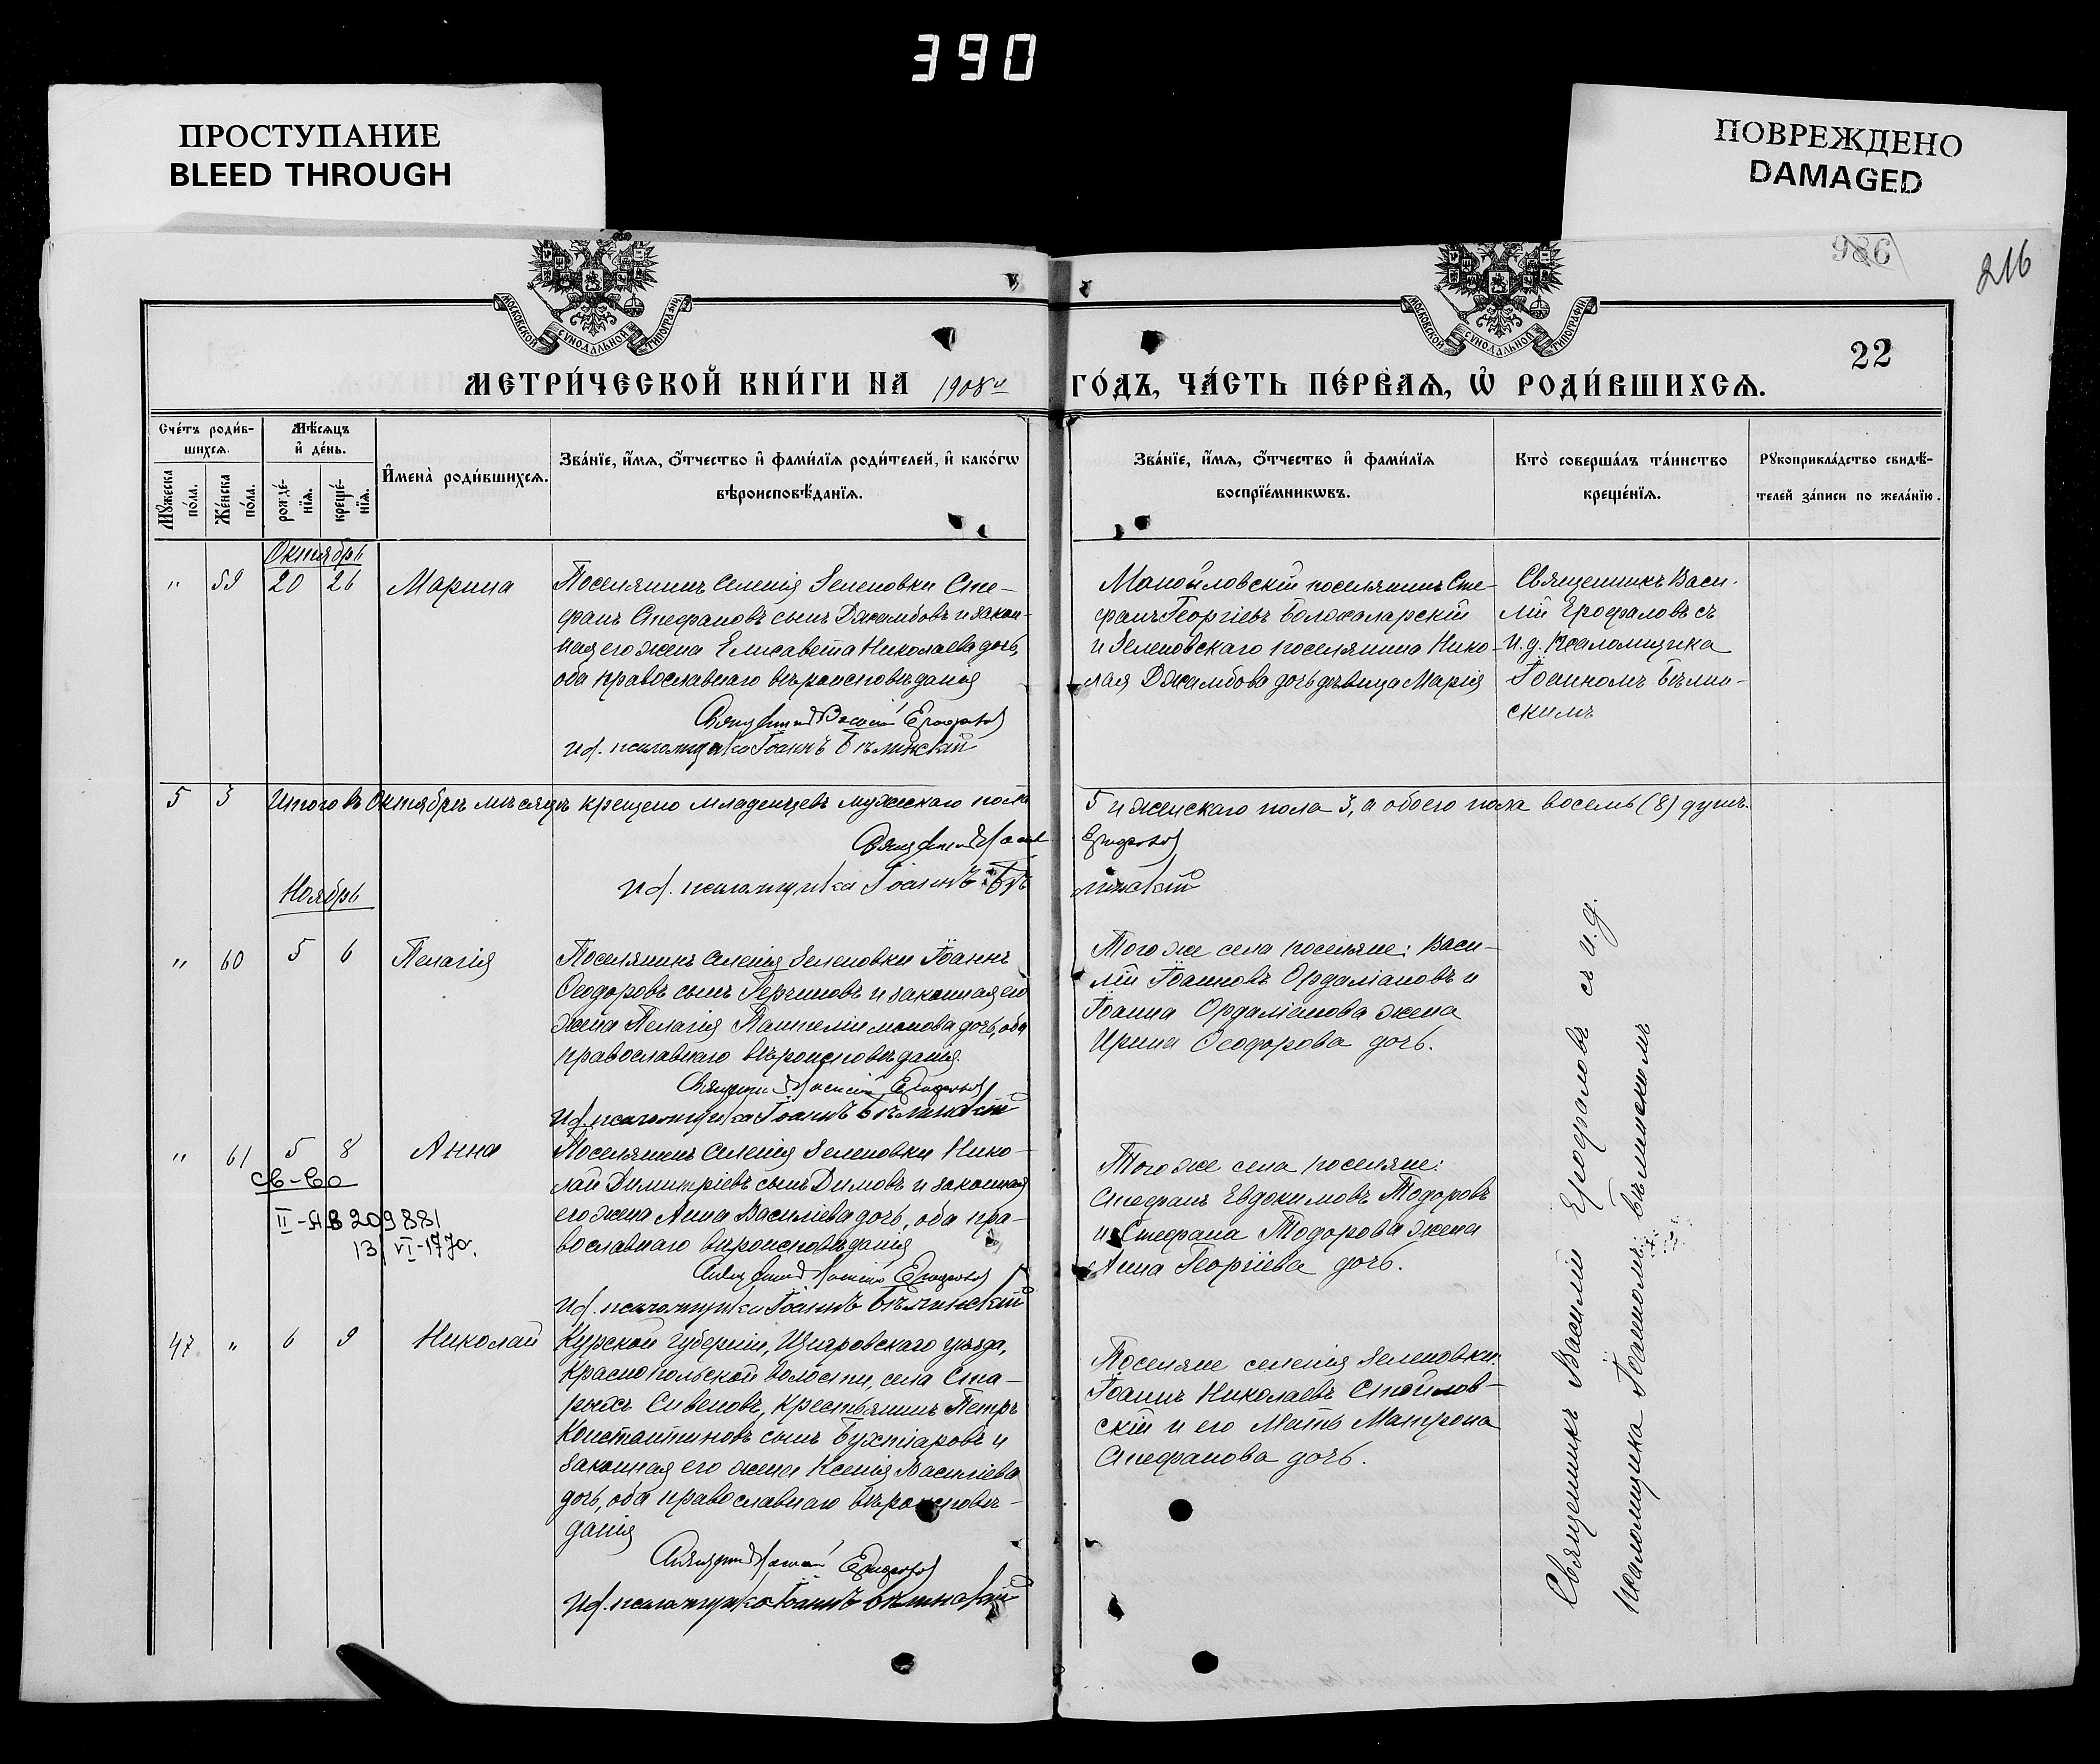 390
ПРОСТУПАНИЕ
BLEED THROUGH
ПОВРЕЖДЕНО
DAMAGED
986
216
МОСКОВСКОЙ СѴНОДАЛЬНОЙ ТИПОГРАФІИ
МОСКОВСКОЙ СѴНОДАЛЬНОЙ ТИПОГРАФІИ
22
МЕТРИ́ЧЕСКОЙ КНИ́ГИ НА 1908й ГО́ДЪ, ЧА́СТЬ ПЕ́РВАѦ, Ѡ҆ РОДИ́ВШИХСѦ.
Сче́тъ роди́в-
шихсѧ.
Мꙋ́жеска по́ла.
Же́нска по́ла.
Мѣ́сѧцъ
и҆ де́нь.
рожде́-
нїѧ.
креще́-
нїѧ.
И҆мена̀ роди́вшихсѧ.
Зва́нїе, и҆́мѧ, ѻ҆́тчество и҆ фами́лїѧ роди́телей, и҆ како́гѡ
вѣроисповѣ́данїѧ.
Зва́нїе, и҆́мѧ, ѻ҆́тчество и҆ фами́лїѧ
воспрїе́мникѡвъ.
Кто̀ соверша́лъ та́инство
креще́нїѧ.
Рꙋкоприкла́дство свидѣ́-
телей за́писи по жела́нїю.
Октябрь
" 59 20 26 Марина
Поселянинъ селенія Зеленовки Сте-
фанъ Стефановъ сынъ Джамбовъ и закон-
ная его жена Елисавета Николаева дочь,
оба православнаго вѣроисповѣданія
Священникъ Василій Ерофаловъ
И.д. псаломщика Іоаннъ Бѣлинскій
Манойловскій поселянинъ Сте-
фанъ Георгіевъ Болокаларскій
и Зеленовскаго поселянина Нико-
лая Джамбова дочь дѣвица Марія
Священникъ Васи-
лій Ерофаловъ съ
и.д. псаломщика
Іоанномъ Бѣлин-
скимъ
5 3 Итого въ Октябрѣ мѣсяцѣ крещено младенцевъ мужескаго пола 5 и женскаго пола 3, а обоего пола восемь (8) душъ.
Священникъ Василій Ерофаловъ
И.д. псаломщика Іоаннъ Бѣлинскій
Ноябрь
" 60 5 6 Пелагія
Поселянинъ селенія Зеленовки Іоаннъ
Ѳеодоровъ сынъ Герчиновъ и законная его
жена Пелагія Пантелеимонова дочь, оба
православнаго вѣроисповѣданія.
Священникъ Василій Ерофаловъ
И.д. псаломщика Іоаннъ Бѣлинскій
Того же села поселяне: Васи-
лій Іоанновъ Ордаліановъ и
Іоанна Ордаліанова жена
Ирина Ѳеодорова дочь.
" 61 5 8 Анна
св-во
II-ЯВ 209881
13/VI-1970г.
Поселянинъ селенія Зеленовки Нико-
лай Димитріевъ сынъ Димовъ и законная
его жена Анна Василіева дочь, оба пра-
вославнаго вѣроисповѣданія
Священникъ Василій Ерофаловъ
И.д. псаломщика Іоаннъ Бѣлинскій
Того же села поселяне:
Стефанъ Евдокимовъ Тодоровъ
и Стефана Тодорова жена
Анна Георгіева дочь.
47 " 6 9 Николай
Курской губерніи, Щигровскаго уѣзда,
Краснопольской волости, села Ста-
рыхъ Сивеповъ, крестьянинъ Петръ
Константиновъ сынъ Бухтіаровъ и
законная его жена Ксенія Василіева
дочь, оба православнаго вѣроисповѣ-
данія
Священникъ Василій Ерофаловъ
И.д. псаломщика Іоаннъ Бѣлинскій
Поселяне селенія Зеленовки:
Іоаннъ Николаевъ Стойлов-
скій и его мать Матрона
Стефанова дочь.
Священникъ Василій Ерофаловъ съ и.д.
псаломщика Іоанномъ Бѣлинскимъ